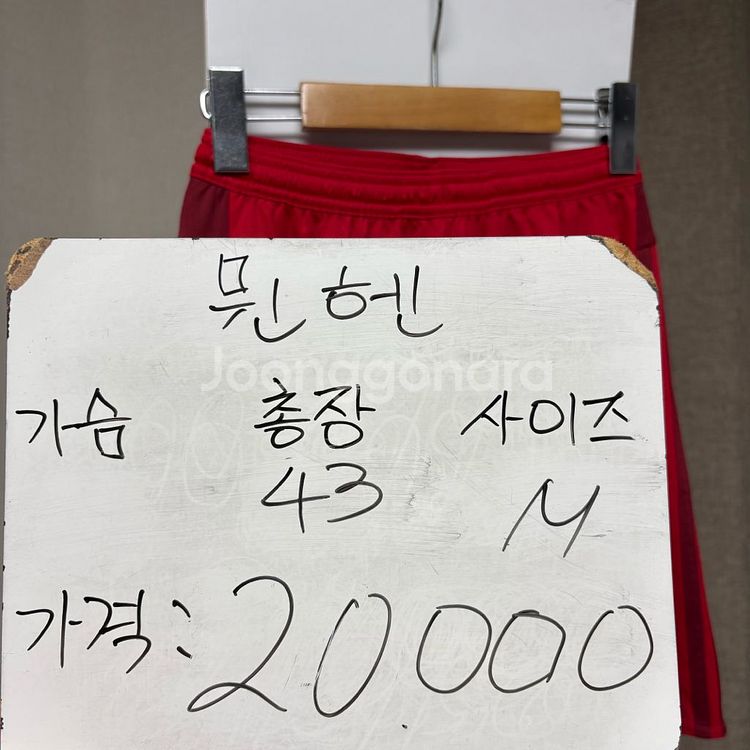 뮌헨
Joonggonara
가슴 총장 사이즈
43 M
가격: 20.000